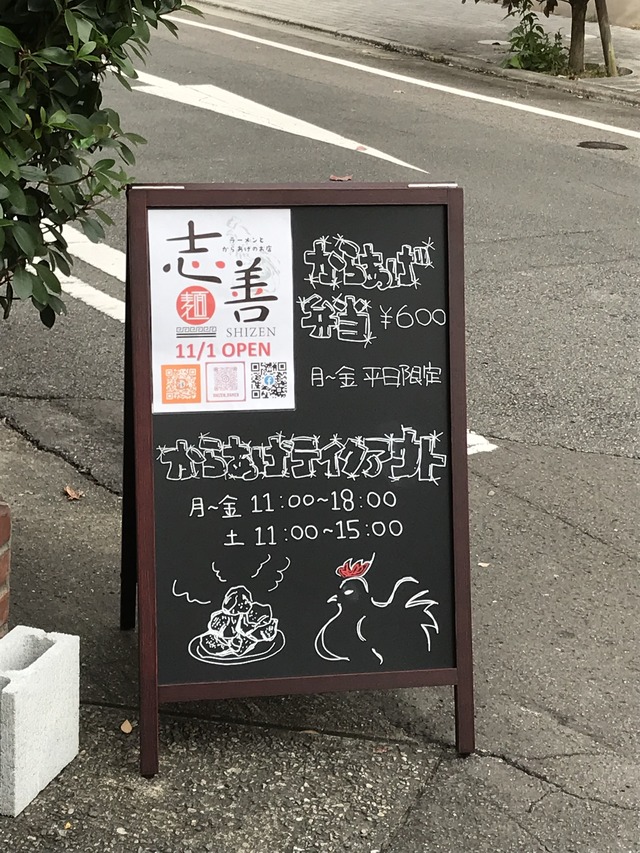 志善
ラーメンと
からあげのお店
麺
SHIZEN
11/1 OPEN
からあげ
弁当 ¥600
月~金 平日限定
からあげテイクアウト
月~金 11:00~18:00
土 11:00~15:00